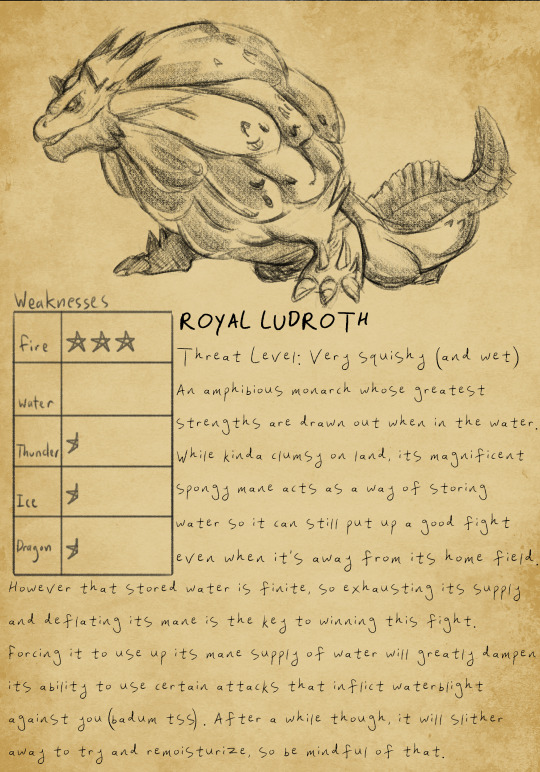 Weaknesses
Fire
Water
Thunder
Ice
Dragon
ROYAL LUDROTH
Threat Level: Very squishy (and wet)
An amphibious monarch whose greatest
strengths are drawn out when in the water.
While kinda clumsy on land, its magnificent
spongy mane acts as a way of storing
water so it can still put up a good fight
even when it's away from its home field.
However that stored water is finite, so exhausting its supply
and deflating its mane is the key to winning this fight.
Forcing it to use up its mane supply of water will greatly dampen
its ability to use certain attacks that inflict waterblight
against you (badum tss). After a while though, it will slither
away to try and remoisturize, so be mindful of that.